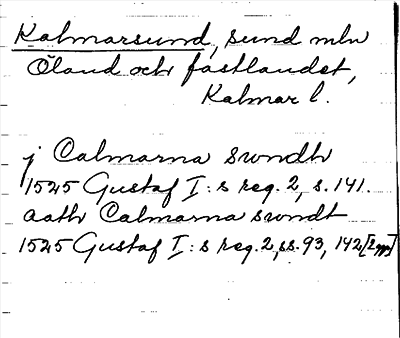 Kalmarsund, sund mln
Öland och fastlandet,
Kalmar l.
j Calmarna Swndh
1525 Gustaf I:s reg. 2, s. 141.
aath Calmarna swndt
1525 Gustaf I:s reg. 2, ss. 93, 142 [2 ggr]